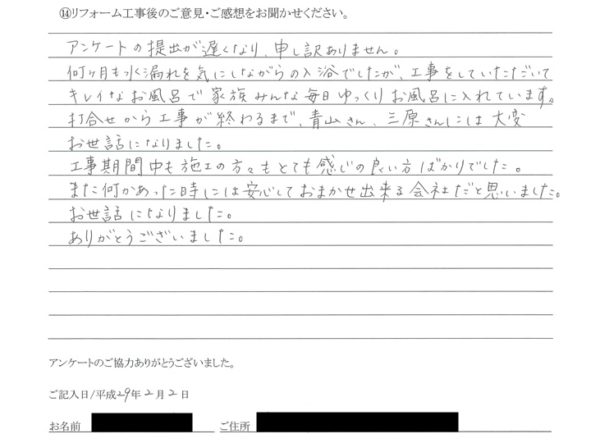 ⑭リフォーム工事後のご意見・ご感想をお聞かせください。
アンケートの提出が遅くなり、申し訳ありません。
何ヶ月も水漏れを気にしながらの入浴でしたが、工事をしていただいて
キレイなお風呂で家族みんな毎日ゆっくりお風呂に入れています。
打合せから工事が終わるまで、青山さん、三原さんには大変
お世話になりました。
工事期間中も施工の方々もとても感じの良い方ばかりでした。
また何かあった時には安心しておまかせ出来る会社だと思いました。
お世話になりました。
ありがとうございました。
アンケートのご協力ありがとうございました。
ご記入日/平成29年2月2日
お名前 ご住所